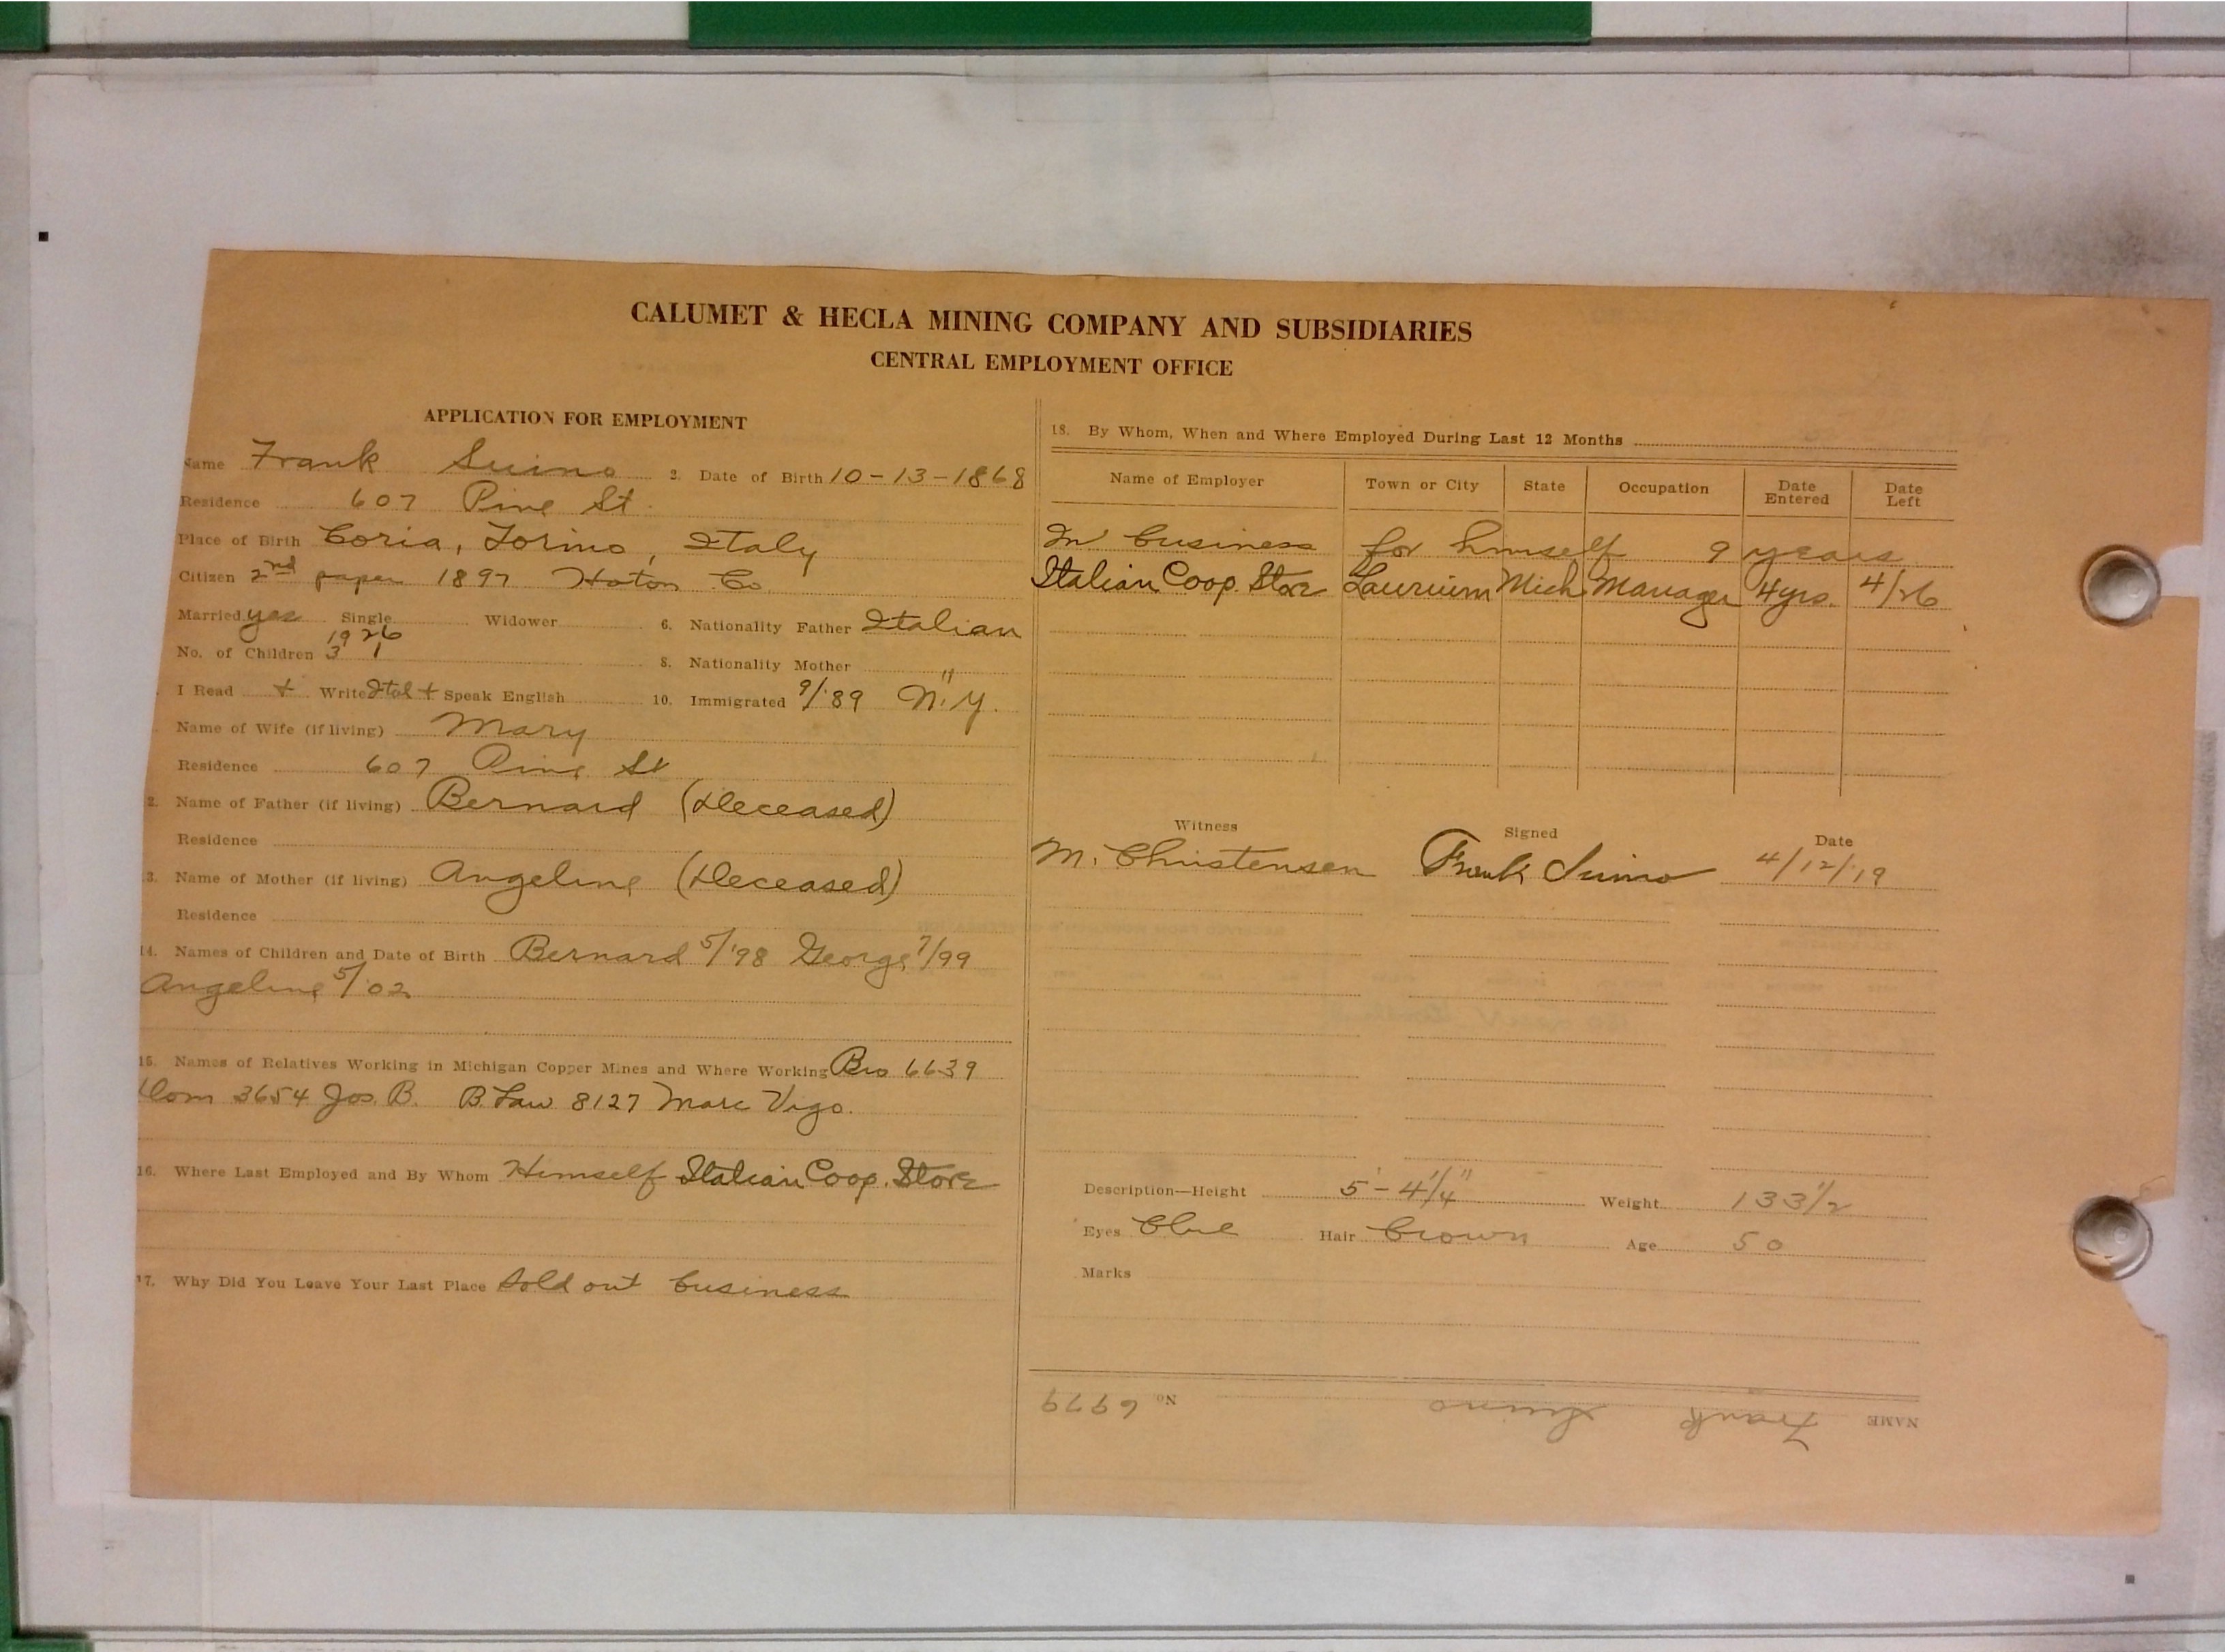 CALUMET & HECLA MINING COMPANY AND SUBSIDIARIES
CENTRAL EMPLOYMENT OFFICE
APPLICATION FOR EMPLOYMENT
Name Frank Suino 2. Date of Birth 10-13-1868
Residence 607 Pine St.
Place of Birth Coria, Torino, Italy
Citizen 2nd paper 1897 Hoton Co
Married yes Single Widower 6. Nationality Father Italian
1926
No. of Children 3 1 8. Nationality Mother "
I Read + Write Ital + Speak English 10. Immigrated 9/'89 N.Y.
Name of Wife (if living) Mary
Residence 607 Pine St
2. Name of Father (if living) Bernard (Deceased)
Residence
3. Name of Mother (if living) Angeline (Deceased)
Residence
14. Names of Children and Date of Birth Bernard 5/'98 George 7/99
Angeline 5/02
15. Names of Relatives Working in Michigan Copper Mines and Where Working Bro 6639
Dom 3654 Jos. B. B. Law 8127 Marc Vigo.
16. Where Last Employed and By Whom Himself Italian Coop. Store
17. Why Did You Leave Your Last Place Sold out business
18. By Whom, When and Where Employed During Last 12 Months
Name of Employer Town or City State Occupation Date Entered Date Left
In business for himself 9 years
Italian Coop. Store Laurium Mich Manager 4yrs. 4/26
Witness Signed Date
M. Christensen Frank Suino 4/12/'19
Description—Height 5'-4 1/4" Weight 133 1/2
Eyes blue Hair brown Age 50
Marks
NAME Frank Suino No. 6979